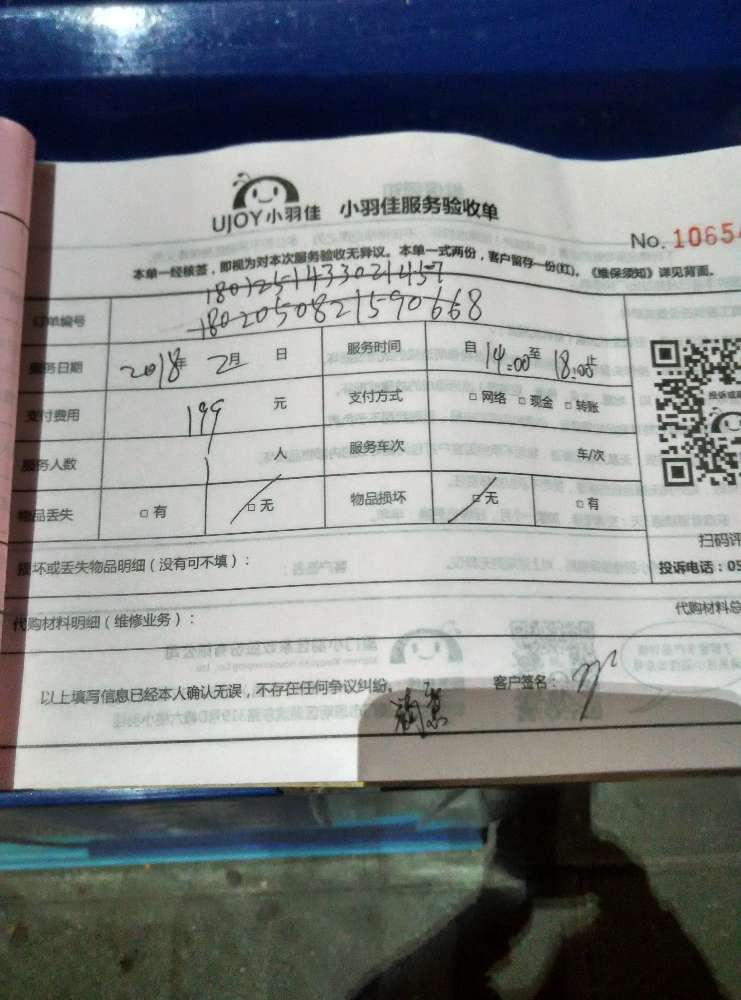 UJOY小羽佳 小羽佳服务验收单
No. 10654
本单一经核签，即视为对本次服务验收无异议。本单一式两份，客户留存一份(红)。《维保须知》详见背面。
订单编号 1801251433021457
1802050821590668
服务日期 2018年 2月 日 服务时间 自 14:00至 18:00止
支付费用 199 元 支付方式 □ 网络 □ 现金 □ 转账
服务人数 1 人 服务车次 车/次
物品丢失 □ 有 □ 无 物品损坏 □ 无 □ 有
投诉或
扫码评
损坏或丢失物品明细（没有可不填）：
投诉电话：05
代购材料明细（维修业务）：
代购材料总
以上填写信息已经本人确认无误，不存在任何争议纠纷。 客户签名：